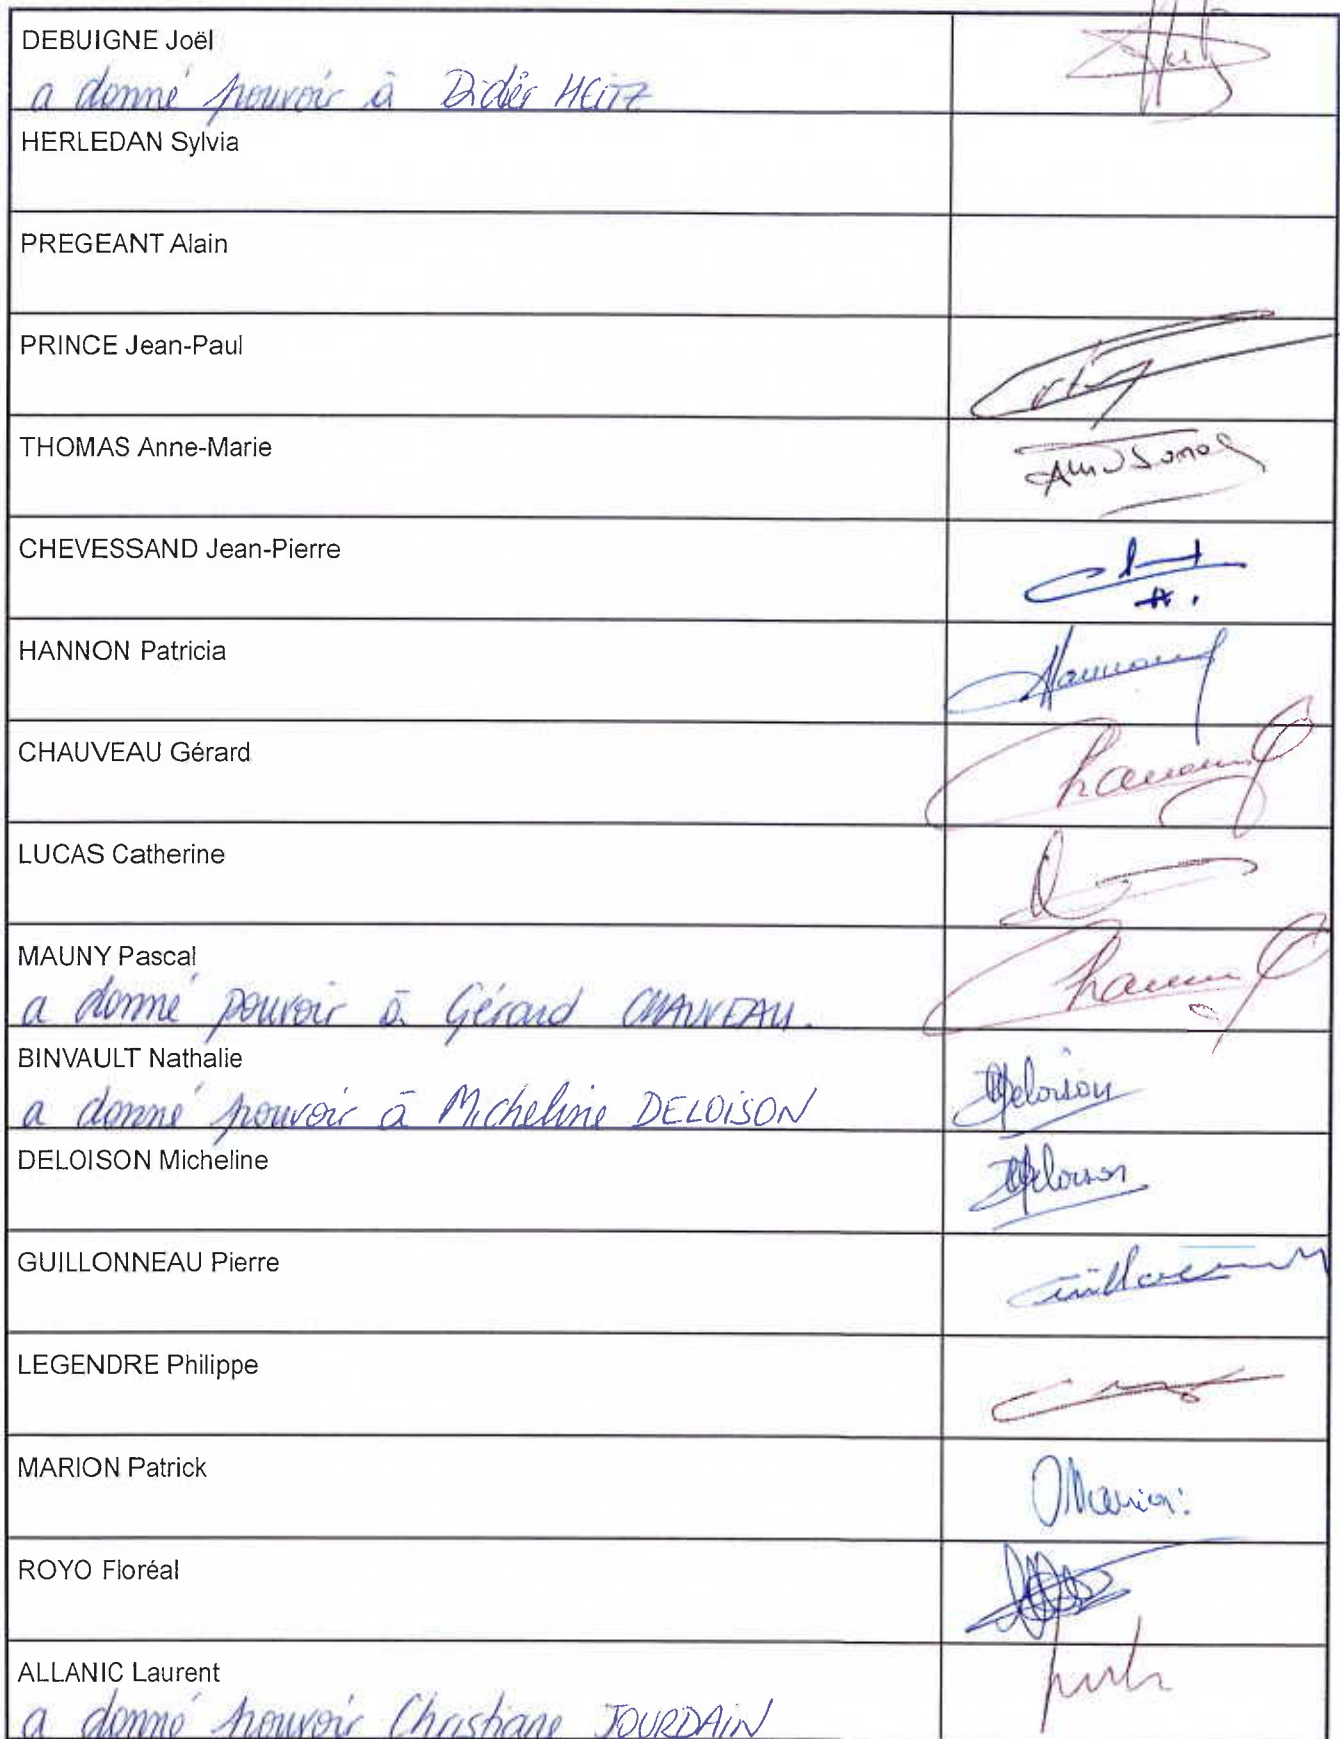 DEBUIGNE Joël
a donné pouvoir à Didier HEITZ
HERLEDAN Sylvia
PREGEANT Alain
PRINCE Jean-Paul
THOMAS Anne-Marie
CHEVESSAND Jean-Pierre
HANNON Patricia
CHAUVEAU Gérard
LUCAS Catherine
MAUNY Pascal
a donné pouvoir à Gérard CHAUVEAU.
BINVAULT Nathalie
a donné pouvoir à Micheline DELOISON
Deloison
DELOISON Micheline
Deloison
GUILLONNEAU Pierre
LEGENDRE Philippe
MARION Patrick
Marion
ROYO Floréal
ALLANIC Laurent
a donné pouvoir Christiane JOURDAIN